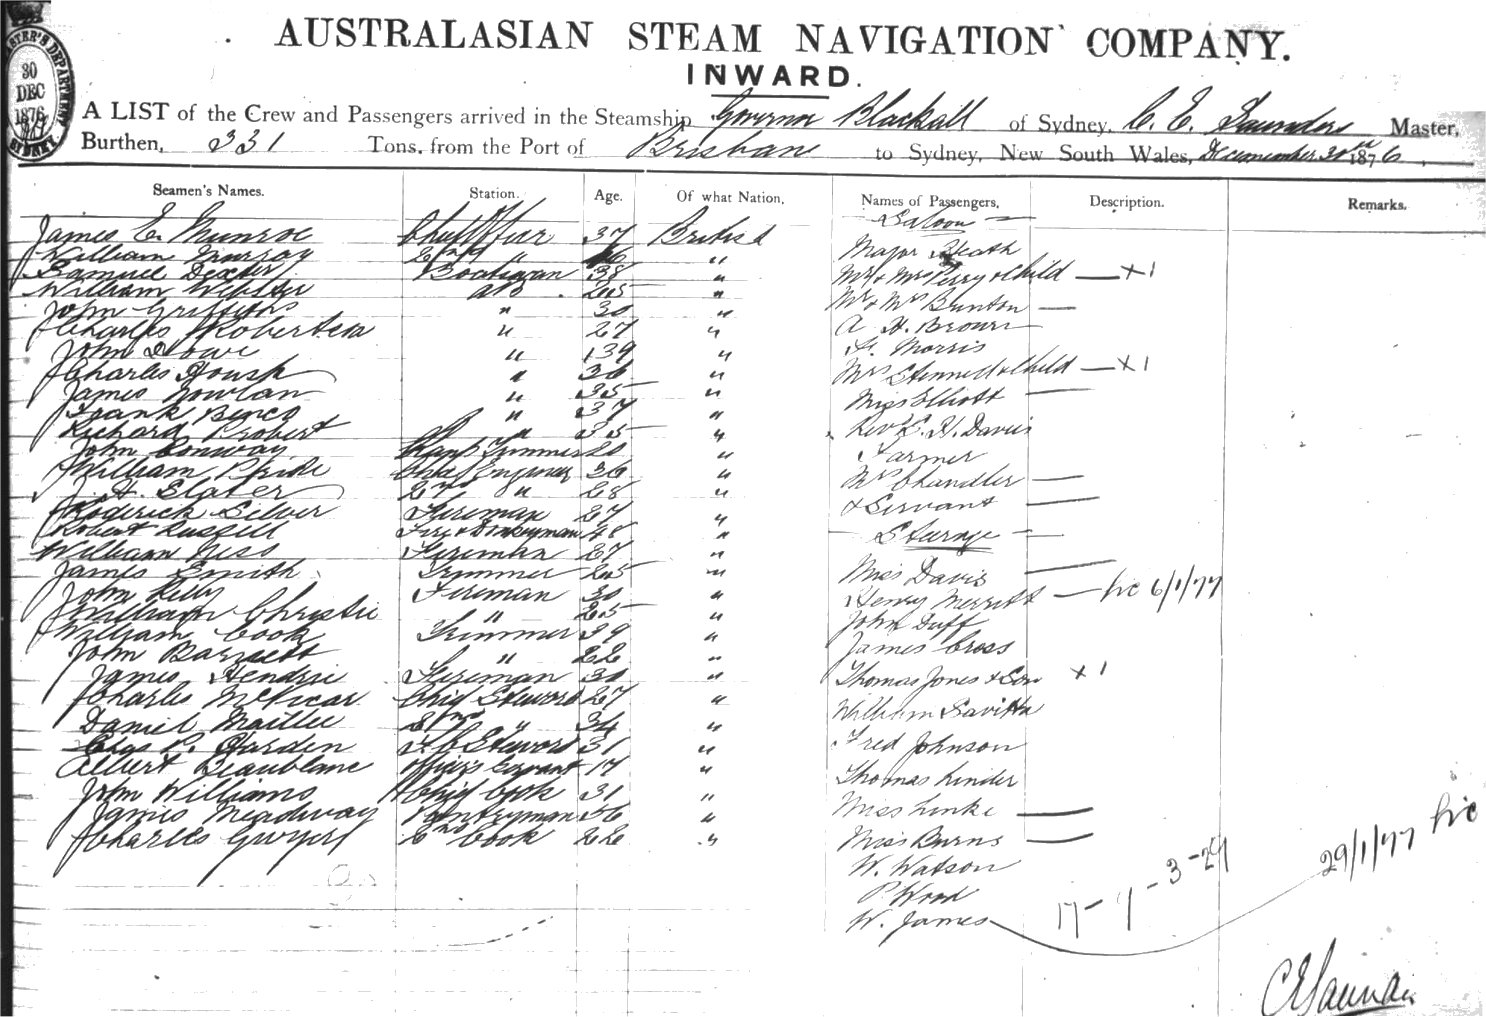 AUSTRALASIAN STEAM NAVIGATION COMPANY.
INWARD.
30
DEC
1876
SYDNEY
A LIST of the Crew and Passengers arrived in the Steamship Governor Blackall of Sydney, C. E. Saunders Master,
Burthen, 331 Tons, from the Port of Brisbane to Sydney, New South Wales, December 30th 1876
Seamen's Names. Station. Age. Of what Nation, Names of Passengers, Description. Remarks.
Saloon
James E. Munroe Chief Officer 37 British
William Murray 2nd "  "
Samuel Dexter Boatswain 38 "
William Webster AB 25 "
John Griffiths " 30 "
Charles Robertson " 27 "
John Dowe " 39 "
Charles " 36 "
James Nowlan " 35 "
Frank " 37 "
Richard Probert " 35 "
John Conway Trimmer 20 "
William Pride Chief Engineer 36 "
J. H. Slater 2nd " 28 "
Roderick Silver Fireman 27 "
Robert Russell Fire & Donkeyman 48 "
William Niss Fireman 27 "
James Smith Trimmer 25 "
John Kelly Fireman 30 "
William Christie " 25 "
William Cook Trimmer 39 "
John Barnett " 22 "
James Hendrie Fireman 30 "
Charles McVicar Chief Steward 27 "
Daniel Maillee 2nd " 34 "
Chas P. Harden F.C Steward 31 "
Albert Beaublanc Officers Servant 17 "
John Williams Chief Cook 31 "
James Meadway Pantryman 36 "
Charles Gwyer 2nd Cook 22 "
Major Heath
Mr & Mrs Perry & Child — x 1
Mr & Mrs Bunton —
A H. Brown
Morris
Mrs Stennett & Child — x 1
Miss Elliott —
Rev L. H. Davis
Farmer
Mrs Chandler —
& Servant —
— Steerage —
Miss Davis —
Henry Merritt — hic 6/1/77
John Duff
James Cross
Thomas Jones & Son x 1
William Savitta
Fred Johnson
Thomas Linder
Miss Linke —
Miss Burns —
W. Watson
P. Wood
W. James 29/1/77 hic
17 - 7 - 3 - 27
C E Saunders